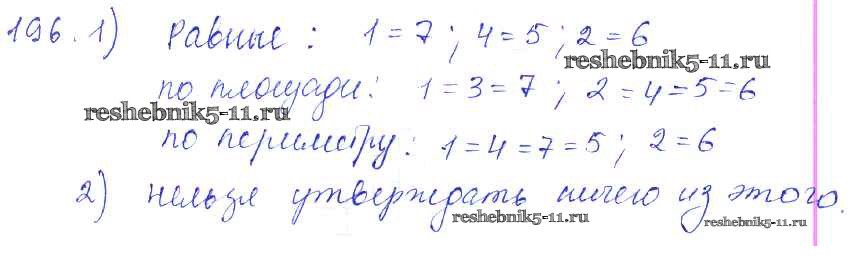 196. 1) Равные : 1 = 7 ; 4 = 5 ; 2 = 6
reshebnik5-11.ru
по площади: 1 = 3 = 7 ; 2 = 4 = 5 = 6
reshebnik5-11.ru
по периметру: 1 = 4 = 7 = 5 ; 2 = 6
2) нельзя утверждать ничего из этого.
reshebnik5-11.ru reshebnik5-11.ru